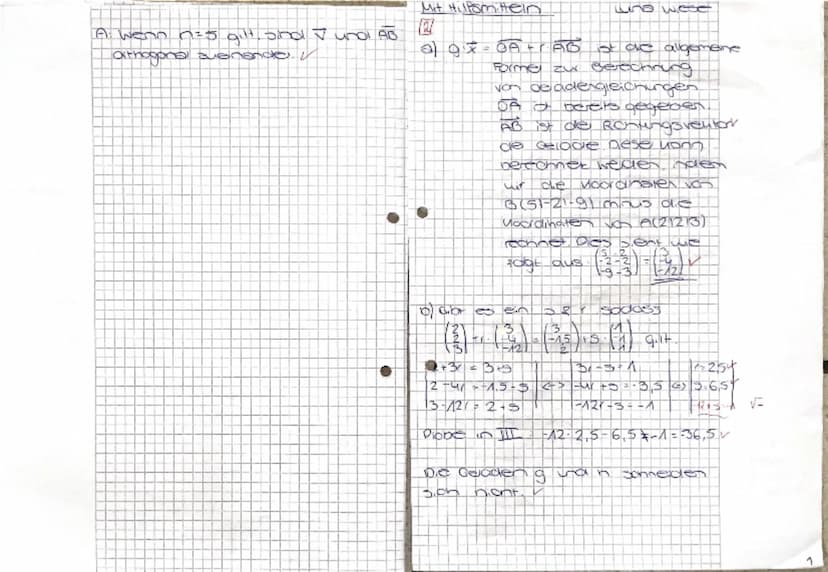 A: Wenn n=5 gilt, sind v⃗ und AB⃗
orthogonal zueinander. ✓
Mit Hilfsmitteln
2
a) g: x⃗ = OA⃗ + r AB⃗ ist die allgemene
Formel zur Berechnung
von Geadengleichungen
OA⃗ ist bereits gegeben.
AB⃗ ist der Richtungsvektor
die Gerade. Diese kann
berechnet werden, indem
wir die Koordinaten von
B(5|-2|-9) minus die
Koordinaten von A(2|2|3)
rechnet. Dies sieht wie
folgt aus: (5-2 -2-2 -9-3) = (3 -4 -12) ✓
b) Gibt es ein s & r sodass
(2 2 3) + r · (3 -4 -12) = (3 -1,5 2) + s · (1 -1 1) gilt.
2+3r = 3+s | 3r-s=1 | r=2,5
2-4r = -1,5-s <=> -4r+s=-3,5 <=> s=6,5
3-12r = 2+s | -12r-s=-1
Probe in III -12·2,5-6,5≠-1=-36,5 ✓
Die Geraden g und h schneiden
sich nicht. ✓
1